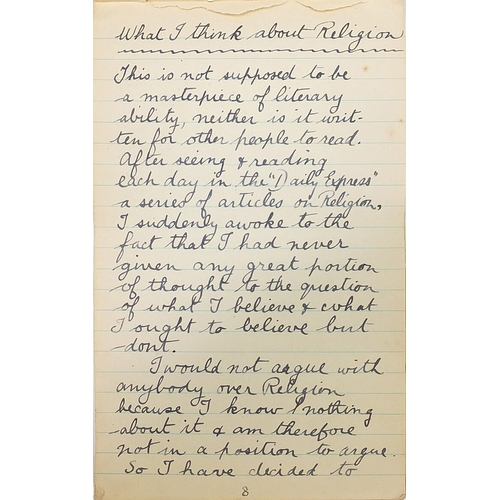 What I think about Religion
This is not supposed to be
a masterpiece of literary
ability, neither is it writ-
ten for other people to read.
After seeing & reading
each day in the "Daily Express"
a series of articles on Religion,
I suddenly awoke to the
fact that I had never
given any great portion
of thought to the question
of what I believe & what
I ought to believe but
dont.
I would not argue with
anybody over Religion
because I know nothing
about it & am therefore
not in a position to argue.
So I have decided to
8